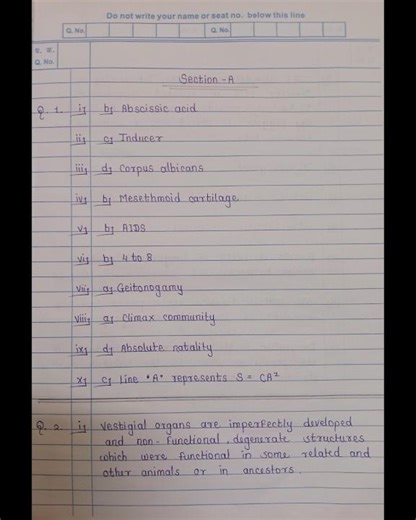 Do not write your name or seat no. below this line
Q. No. Q. No.
Q. No.
Section - A
Q. 1. i) b) Abscissic acid
ii) c) Inducer
iii) d) Corpus albicans
iv) b) Mesethmoid cartilage
v) b) AIDS
vi) b) 4 to 8
vii) a) Geitonogamy
viii) a) Climax community
ix) d) Absolute natality
x) c) Line "A" represents S = CA²
Q. 2. i) Vestigial organs are imperfectly developed
and non-functional, degenerate structures
which were functional in some related and
other animals or in ancestors.